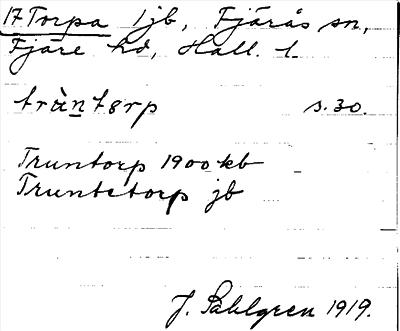 17 Torpa 1 jb, Fjärås sn,
Fjäre hd, Hall. l.
tràntorp s. 30.
Truntorp 1900 kb
Truntetorp jb
J. Sahlgren 1919.